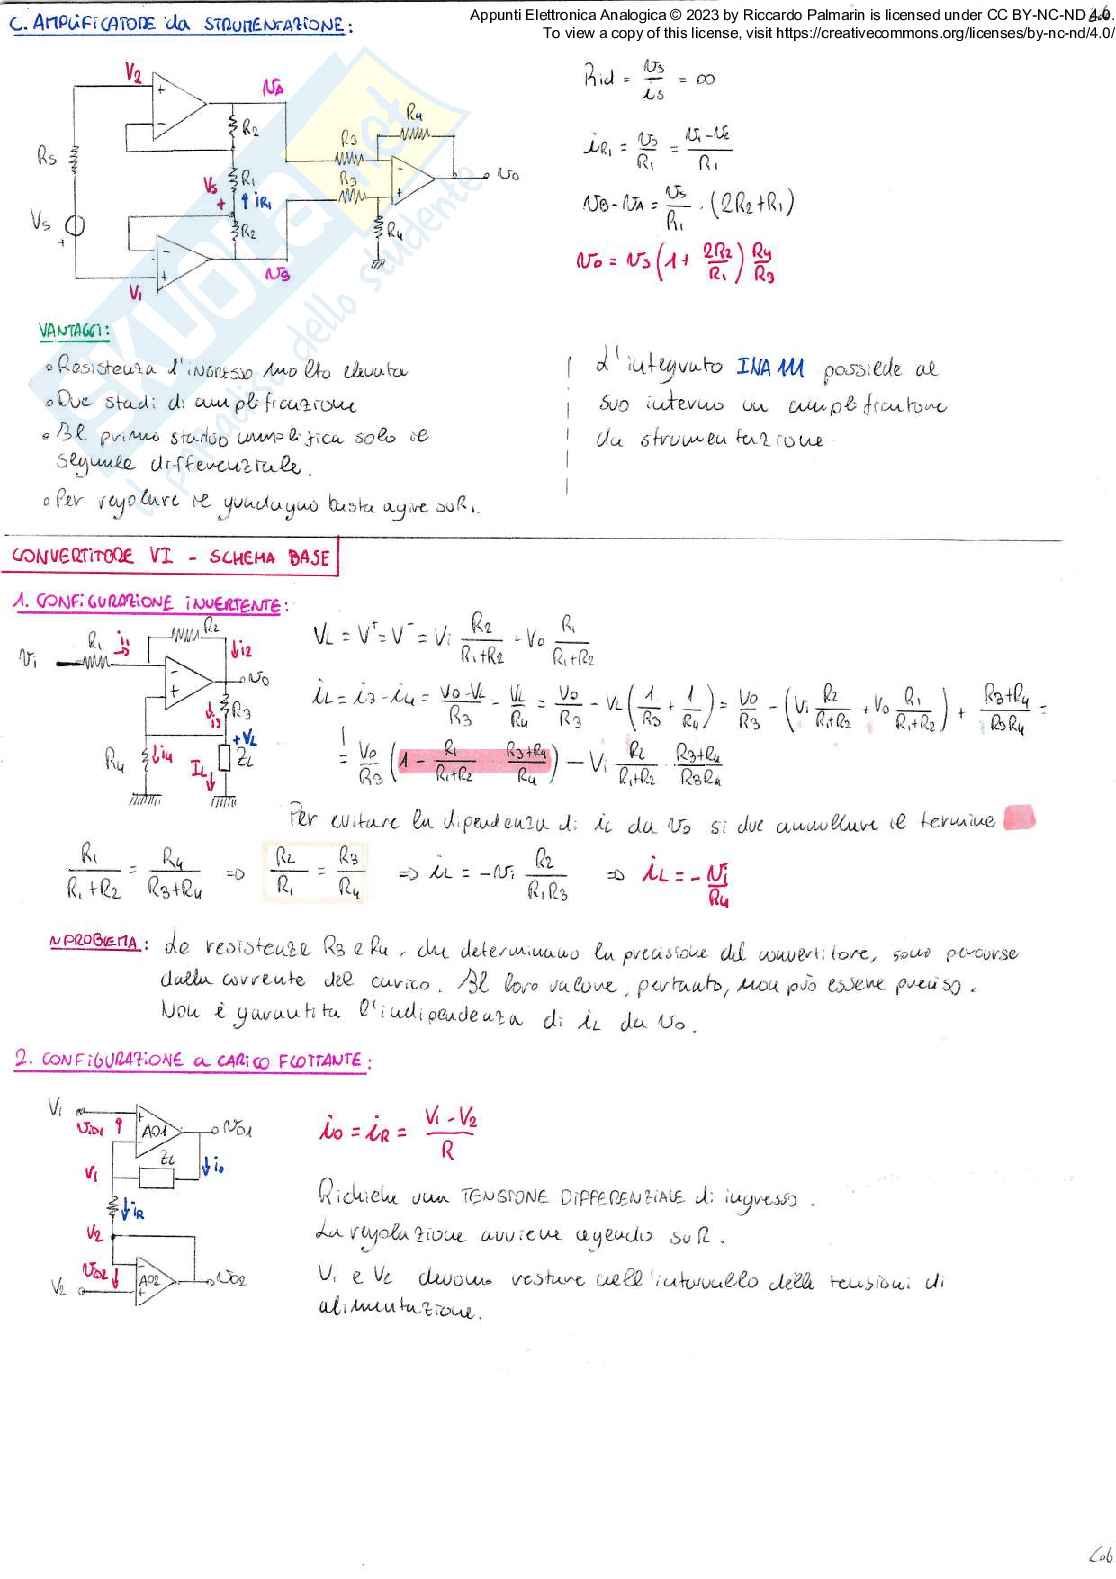 Appunti Elettronica Analogica © 2023 by Riccardo Palmarin is licensed under CC BY-NC-ND 4.0.
To view a copy of this license, visit https://creativecommons.org/licenses/by-nc-nd/4.0/
C. AMPLIFICATORE da STRUMENTAZIONE:
V2
VA
R2
RS
R1
VS
iR1
VS
R2
V1
VB
R3
R4
R3
R4
vo
Rid = vs/is = ∞
iR1 = vs/R1 = (v1-v2)/R1
vB - vA = vs/R1 · (2R2+R1)
vo = vs (1 + 2R2/R1) R4/R3
SKUOLA.net
il paradiso dello studente
VANTAGGI:
Resistenza d'ingresso molto elevata
Due stadi di amplificazione
Il primo stadio amplifica solo il
segnale differenziale.
Per regolare il guadagno basta agire su R1.
L'integrato INA 111 possiede al
suo interno un amplificatore
da strumentazione
CONVERTITORE VI - SCHEMA BASE
1. CONFIGURAZIONE INVERTENTE:
Vi
R1
i1
R2
i2
vo
R3
i3
+VL
R4
i4
IL
ZL
VL = V+ = V- = Vi R2/(R1+R2) - Vo R1/(R1+R2)
iL = i3 - i4 = (Vo-VL)/R3 - VL/R4 = Vo/R3 - VL (1/R3 + 1/R4) = Vo/R3 - (Vi R2/(R1+R2) + Vo R1/(R1+R2)) + (R3+R4)/(R3R4) =
= Vo/R3 (1 - R1/(R1+R2) (R3+R4)/R4) - Vi R2/(R1+R2) · (R3+R4)/(R3R4)
Per evitare la dipendenza di iL da vo si due annullare il termine
R1/(R1+R2) = R4/(R3+R4) => R2/R1 = R3/R4 => iL = -vi R2/(R1R3) => iL = -vi/R4
PROBLEMA: Le resistenze R3 e R4, che determinano la precisione del convertitore, sono percorse
dalla corrente del carico. Il loro valore, pertanto, non può essere preciso.
Non è garantita l'indipendenza di iL da vo.
2. CONFIGURAZIONE a CARICO FLOTTANTE:
V1
VID1
AO1
VO1
ZL
io
V1
iR
V2
VID2
AO2
VO2
V2
io = iR = (V1 - V2)/R
Richiede una TENSIONE DIFFERENZIALE di ingresso.
La regolazione avviene agendo su R.
V1 e V2 devono restare nell'intervallo delle tensioni di
alimentazione.